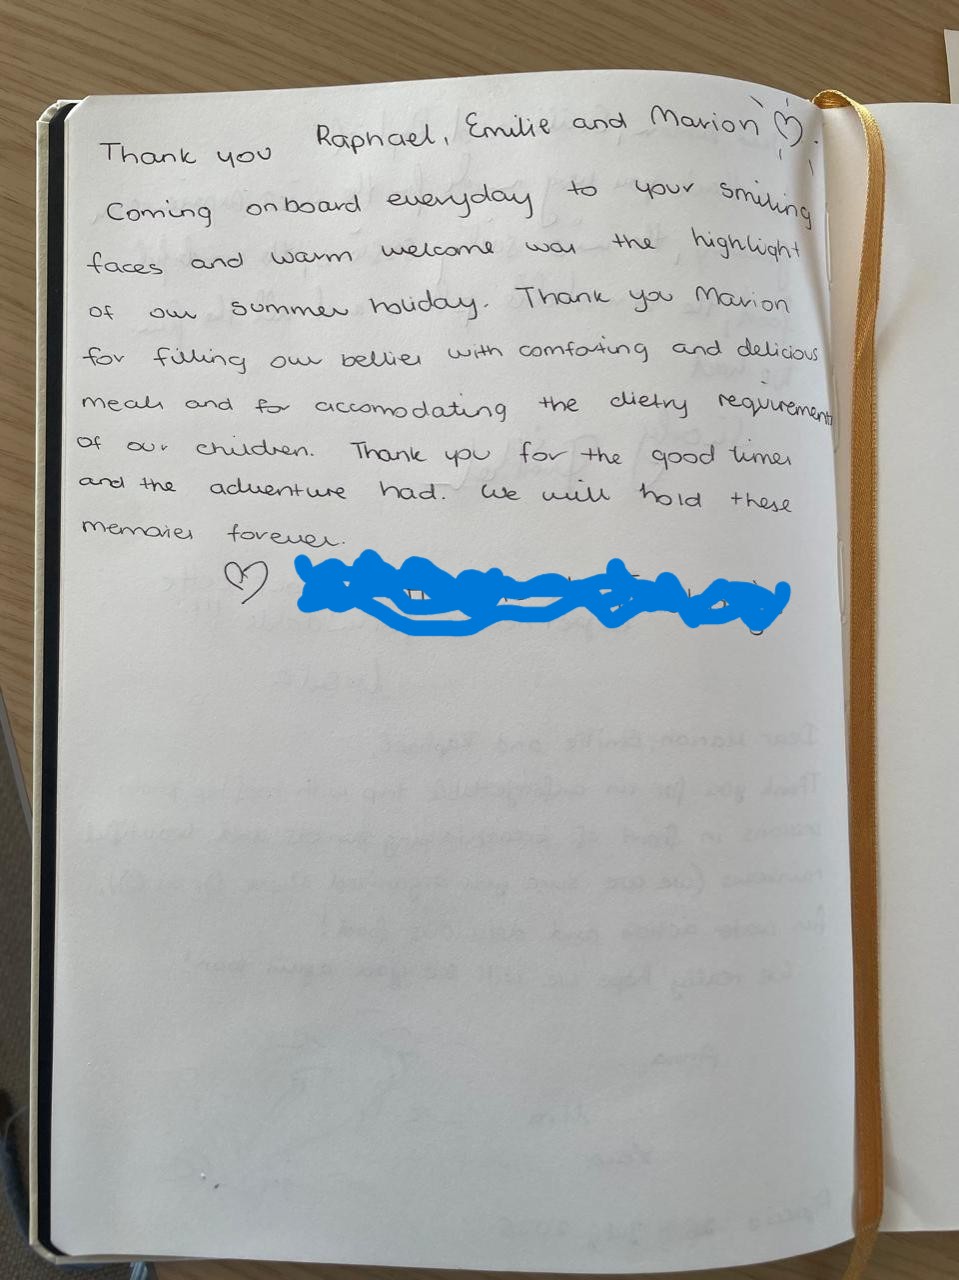 Thank you Raphael, Emilie and Marion ♡.
Coming onboard everyday to your smiling
faces and warm welcome was the highlight
of our summer holiday. Thank you Marion
for filling our bellies with comforting and delicious
meals and for accomodating the dietry requirements
of our children. Thank you for the good times
and the adventure had. We will hold these
memories forever.
♡